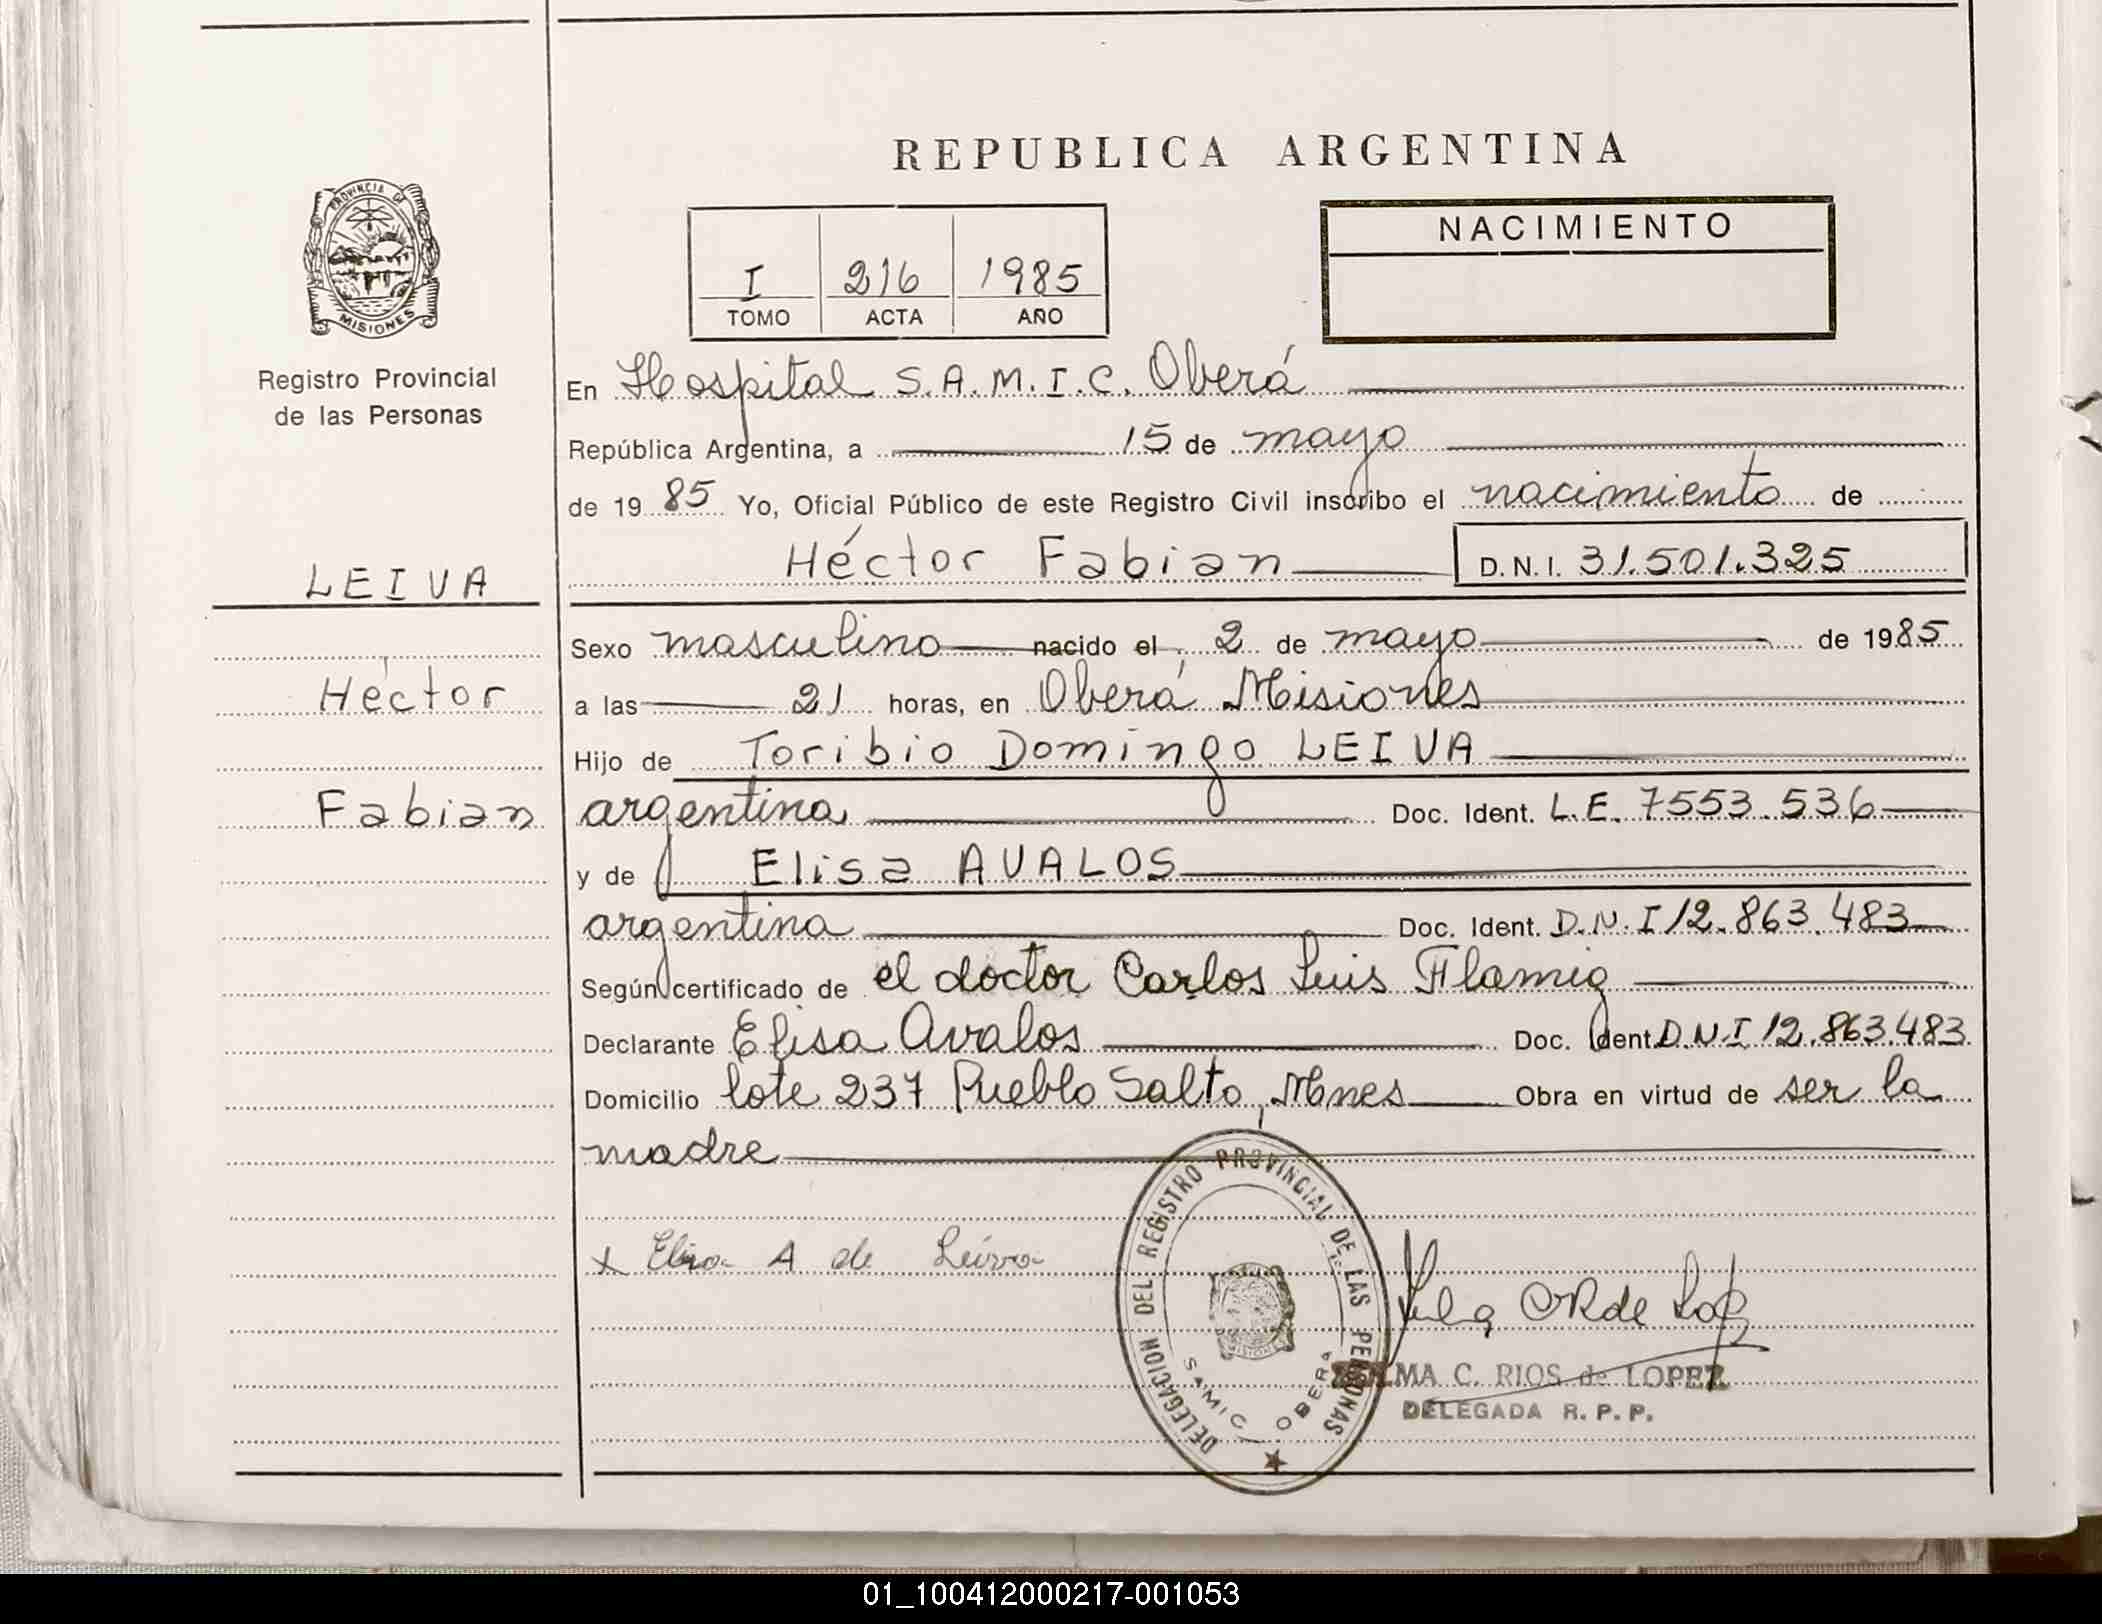 REPUBLICA ARGENTINA
PROVINCIA DE
MISIONES
Registro Provincial
de las Personas
I 216 1985
TOMO ACTA AÑO
NACIMIENTO
En Hospital S.A.M.I.C. Oberá
República Argentina, a 15 de mayo
de 1985 Yo, Oficial Público de este Registro Civil inscribo el nacimiento de
Héctor Fabian D.N.I. 31.501.325
LEIVA
Sexo masculino nacido el 2 de mayo de 1985
Héctor
a las 21 horas, en Oberá, Misiones
Hijo de Toribio Domingo LEIVA
Fabian
argentina Doc. Ident. L.E. 7553.536
y de Elisa AVALOS
argentina Doc. Ident. D.N.I 12.863.483
Según certificado de el doctor Carlos Luis Flamig
Declarante Elisa Avalos Doc. Ident. D.N.I 12.863.483
Domicilio lote 237 Pueblo Salto, Mnes Obra en virtud de ser la
madre
x Elisa A de Leiva
DELEGACION DEL REGISTRO PROVINCIAL DE LAS PERSONAS
SAMIC OBERA
MISIONES
C. RIOS de LOPEZ
DELEGADA R. P. P.
01_100412000217-001053